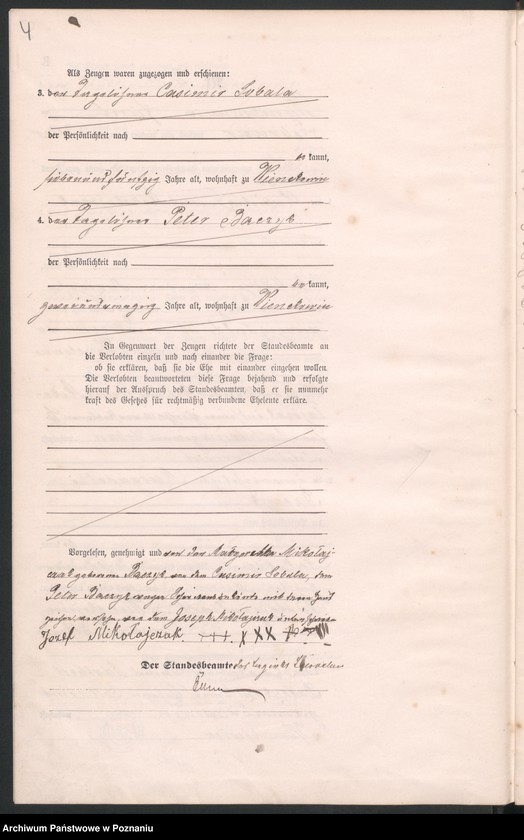 4
Als Zeugen waren zugezogen und erschienen:
3. der Tagelöhner Casimir Sobala
der Persönlichkeit nach
kannt,
siebenundfünfzig Jahre alt, wohnhaft zu
4. der Tagelöhner Peter Baczyk
der Persönlichkeit nach
be kannt,
Jahre alt, wohnhaft zu
In Gegenwart der Zeugen richtete der Standesbeamte an
die Verlobten einzeln und nach einander die Frage:
ob sie erklären, daß sie die Ehe mit einander eingehen wollen.
Die Verlobten beantworteten diese Frage bejahend und erfolgte
hierauf der Ausspruch des Standesbeamten, daß er sie nunmehr
kraft des Gesetzes für rechtmäßig verbundene Eheleute erkläre.
Vorgelesen, genehmigt und von der Mikolaj-
czak geborenen Baczyk von dem Casimir Sobala, dem
Peter Baczyk wegen mit ihren Hand
zeichen versehen, von dem Joseph Mikolajczak unterschrieben
Jozef Mikołajczak. +++. X XX
Der Standesbeamte